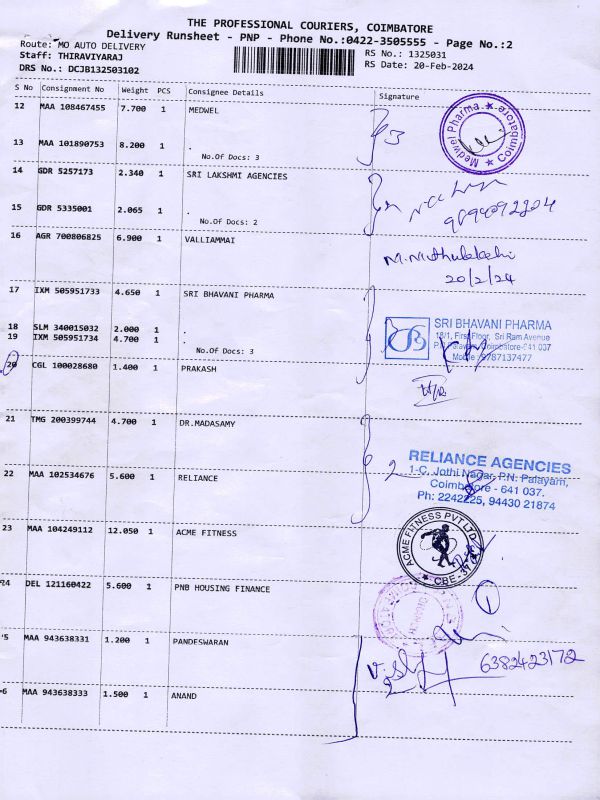 THE PROFESSIONAL COURIERS, COIMBATORE
Delivery Runsheet - PNP - Phone No.:0422-3505555 - Page No.:2
Route: MO AUTO DELIVERY RS No.: 1325031
Staff: THIRAVIYARAJ RS Date: 20-Feb-2024
DRS No.: DCJB132503102
S No Consignment No Weight PCS Consignee Details Signature
12 MAA 108467455 7.700 1 MEDWEL
3
Medwel Pharma. ★ Coimbatore ★
13 MAA 101890753 8.200 1 .
No.Of Docs: 3
14 GDR 5257173 2.340 1 SRI LAKSHMI AGENCIES
15 GDR 5335001 2.065 1 .
No.Of Docs: 2
16 AGR 700806825 6.900 1 VALLIAMMAI
20/2/24
17 IXM 505951733 4.650 1 SRI BHAVANI PHARMA
SRI BHAVANI PHARMA
18/1, First Floor, Sri Ram Avenue
Coimbatore-641 037
Mobile : 9787137477
18 SLM 340015032 2.000 1 .
19 IXM 505951734 4.700 1 .
No.Of Docs: 3
20 CGL 100028680 1.400 1 PRAKASH
21 TMG 200399744 4.700 1 DR.MADASAMY
2
RELIANCE AGENCIES
1-C, Jothi Nagar, P.N. Palayam,
Coimbatore - 641 037.
Ph: 2242225, 94430 21874
22 MAA 102534676 5.600 1 RELIANCE
23 MAA 104249112 12.050 1 ACME FITNESS
ACME FITNESS PVT LTD
★ CBE-
24 DEL 121160422 5.600 1 PNB HOUSING FINANCE
1
5 MAA 943638331 1.200 1 PANDESWARAN
6382423172
6 MAA 943638333 1.500 1 ANAND